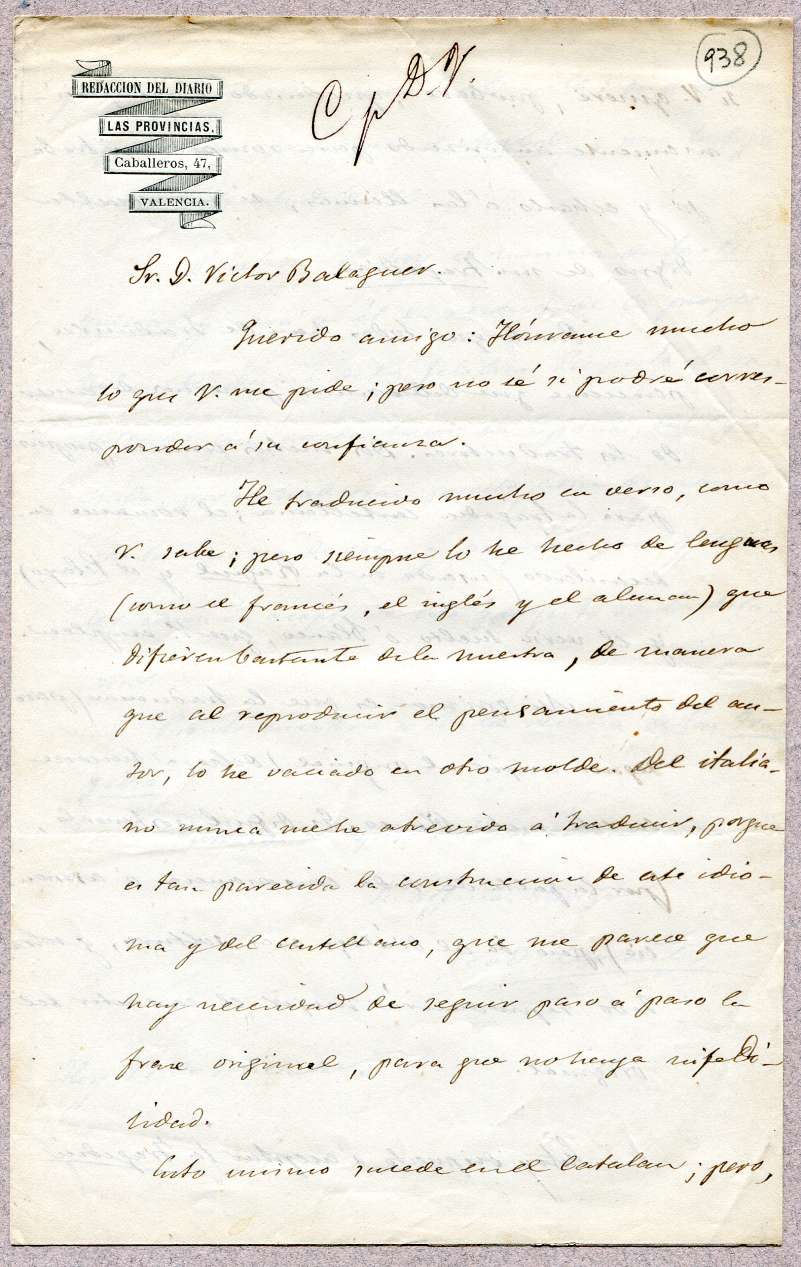 938
C p D. V.
REDACCION DEL DIARIO
LAS PROVINCIAS.
Caballeros, 47,
VALENCIA.
Sr. D. Victor Balaguer.
Querido amigo: Hónrame mucho
lo que V. me pide; pero no sé si podré corres-
ponder á su confianza.
He traducido mucho en verso, como
V. sabe; pero siempre lo he hecho de lenguas
(como el francés, el inglés y el aleman) que
difieren bastante de la nuestra, de manera
que al reproducir el pensamiento del au-
tor, lo he vaciado en otro molde. Del italia-
no nunca me he atrevido á traducir, porque
es tan parecida la construccion de este idio-
ma y del castellano, que me parece que
hay necesidad de seguir paso á paso la
frase original, para que no haya infideli-
sidad.
Esto mismo sucede en el Catalan; pero,